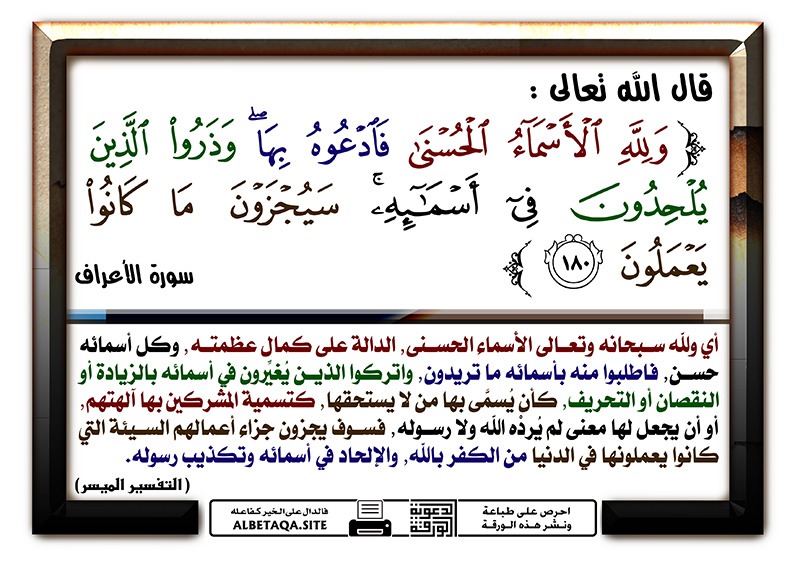 قال الله تعالى :
﴿ وَلِلَّهِ ٱلْأَسْمَآءُ ٱلْحُسْنَىٰ فَٱدْعُوهُ بِهَا ۖ وَذَرُوا۟ ٱلَّذِينَ
يُلْحِدُونَ فِىٓ أَسْمَـٰٓئِهِۦ ۚ سَيُجْزَوْنَ مَا كَانُوا۟
يَعْمَلُونَ ١٨٠ ﴾
سورة الأعراف
أي ولله سبحانه وتعالى الأسماء الحسنى, الدالة على كمال عظمته, وكل أسمائه
حسن, فاطلبوا منه بأسمائه ما تريدون, واتركوا الذين يُغيِّرون في أسمائه بالزيادة أو
النقصان أو التحريف, كأن يُسمَّى بها من لا يستحقها, كتسمية المشركين بها آلهتهم,
أو أن يجعل لها معنى لم يُردْه الله ولا رسوله, فسوف يجزون جزاء أعمالهم السيئة التي
كانوا يعملونها في الدنيا من الكفر بالله, والإلحاد في أسمائه وتكذيب رسوله.
( التفسير الميسر)
احرص على طباعة
ونشر هذه الورقة
الورقة
الدعوية
فالدال على الخير كفاعله
ALBETAQA.SITE